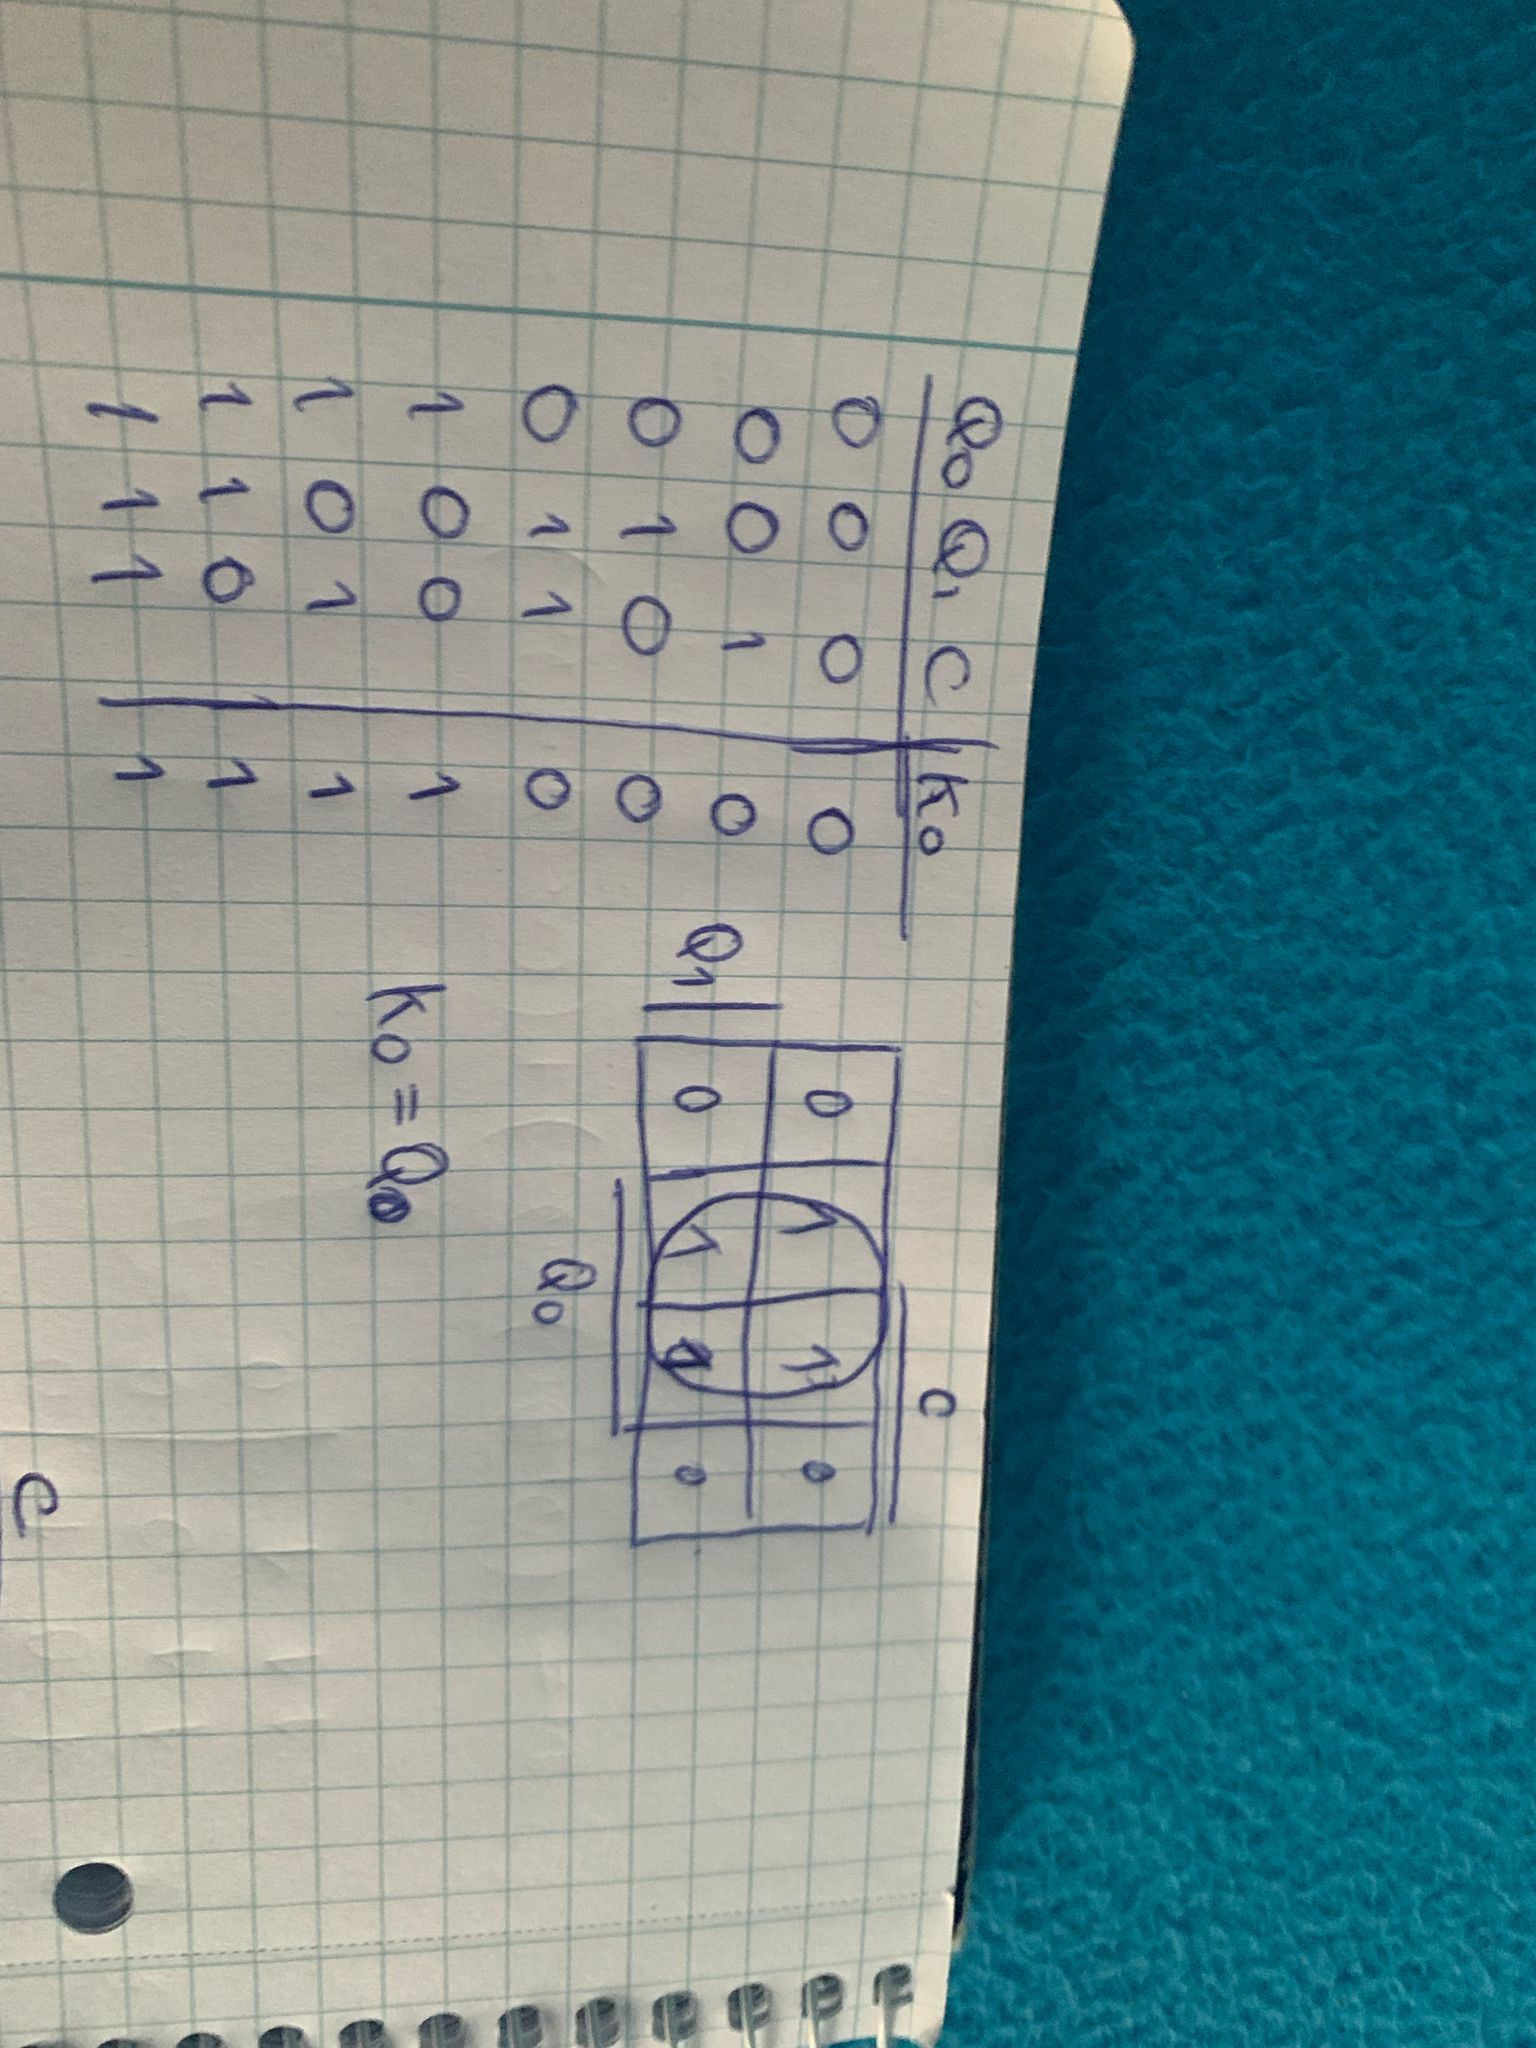 Q0 Q1 C K0
0 0 0 0
0 0 1 0
0 1 0 0
0 1 1 0
1 0 0 1
1 0 1 1
1 1 0 1
1 1 1 1
C
0 1 1 0
Q1 0 1 1 0
Q0
K0 = Q0
C